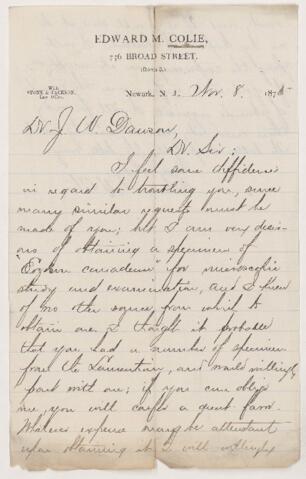 EDWARD M. COLIE,
776 BROAD STREET.
With
Law Office.
Newark, N. J. Nov. 8. 187
Dr J. W. Dawson,
Dr. Sir:
I feel some diffidence
in regard to troubling you, since
many similar requests must be
made of you; but I am very desir-
ous of obtaining a specimen of
"Eozoon canadense" for microscopic
study and examination, and I knew
of no other source, from which to
obtain one. I thought it probable
that you had a number of specimens
from the Laurentian, and would willingly
part with one; if you can oblige
me, you will confer a great favor.
Whatever expense may be attendant
upon obtaining it I will willingly